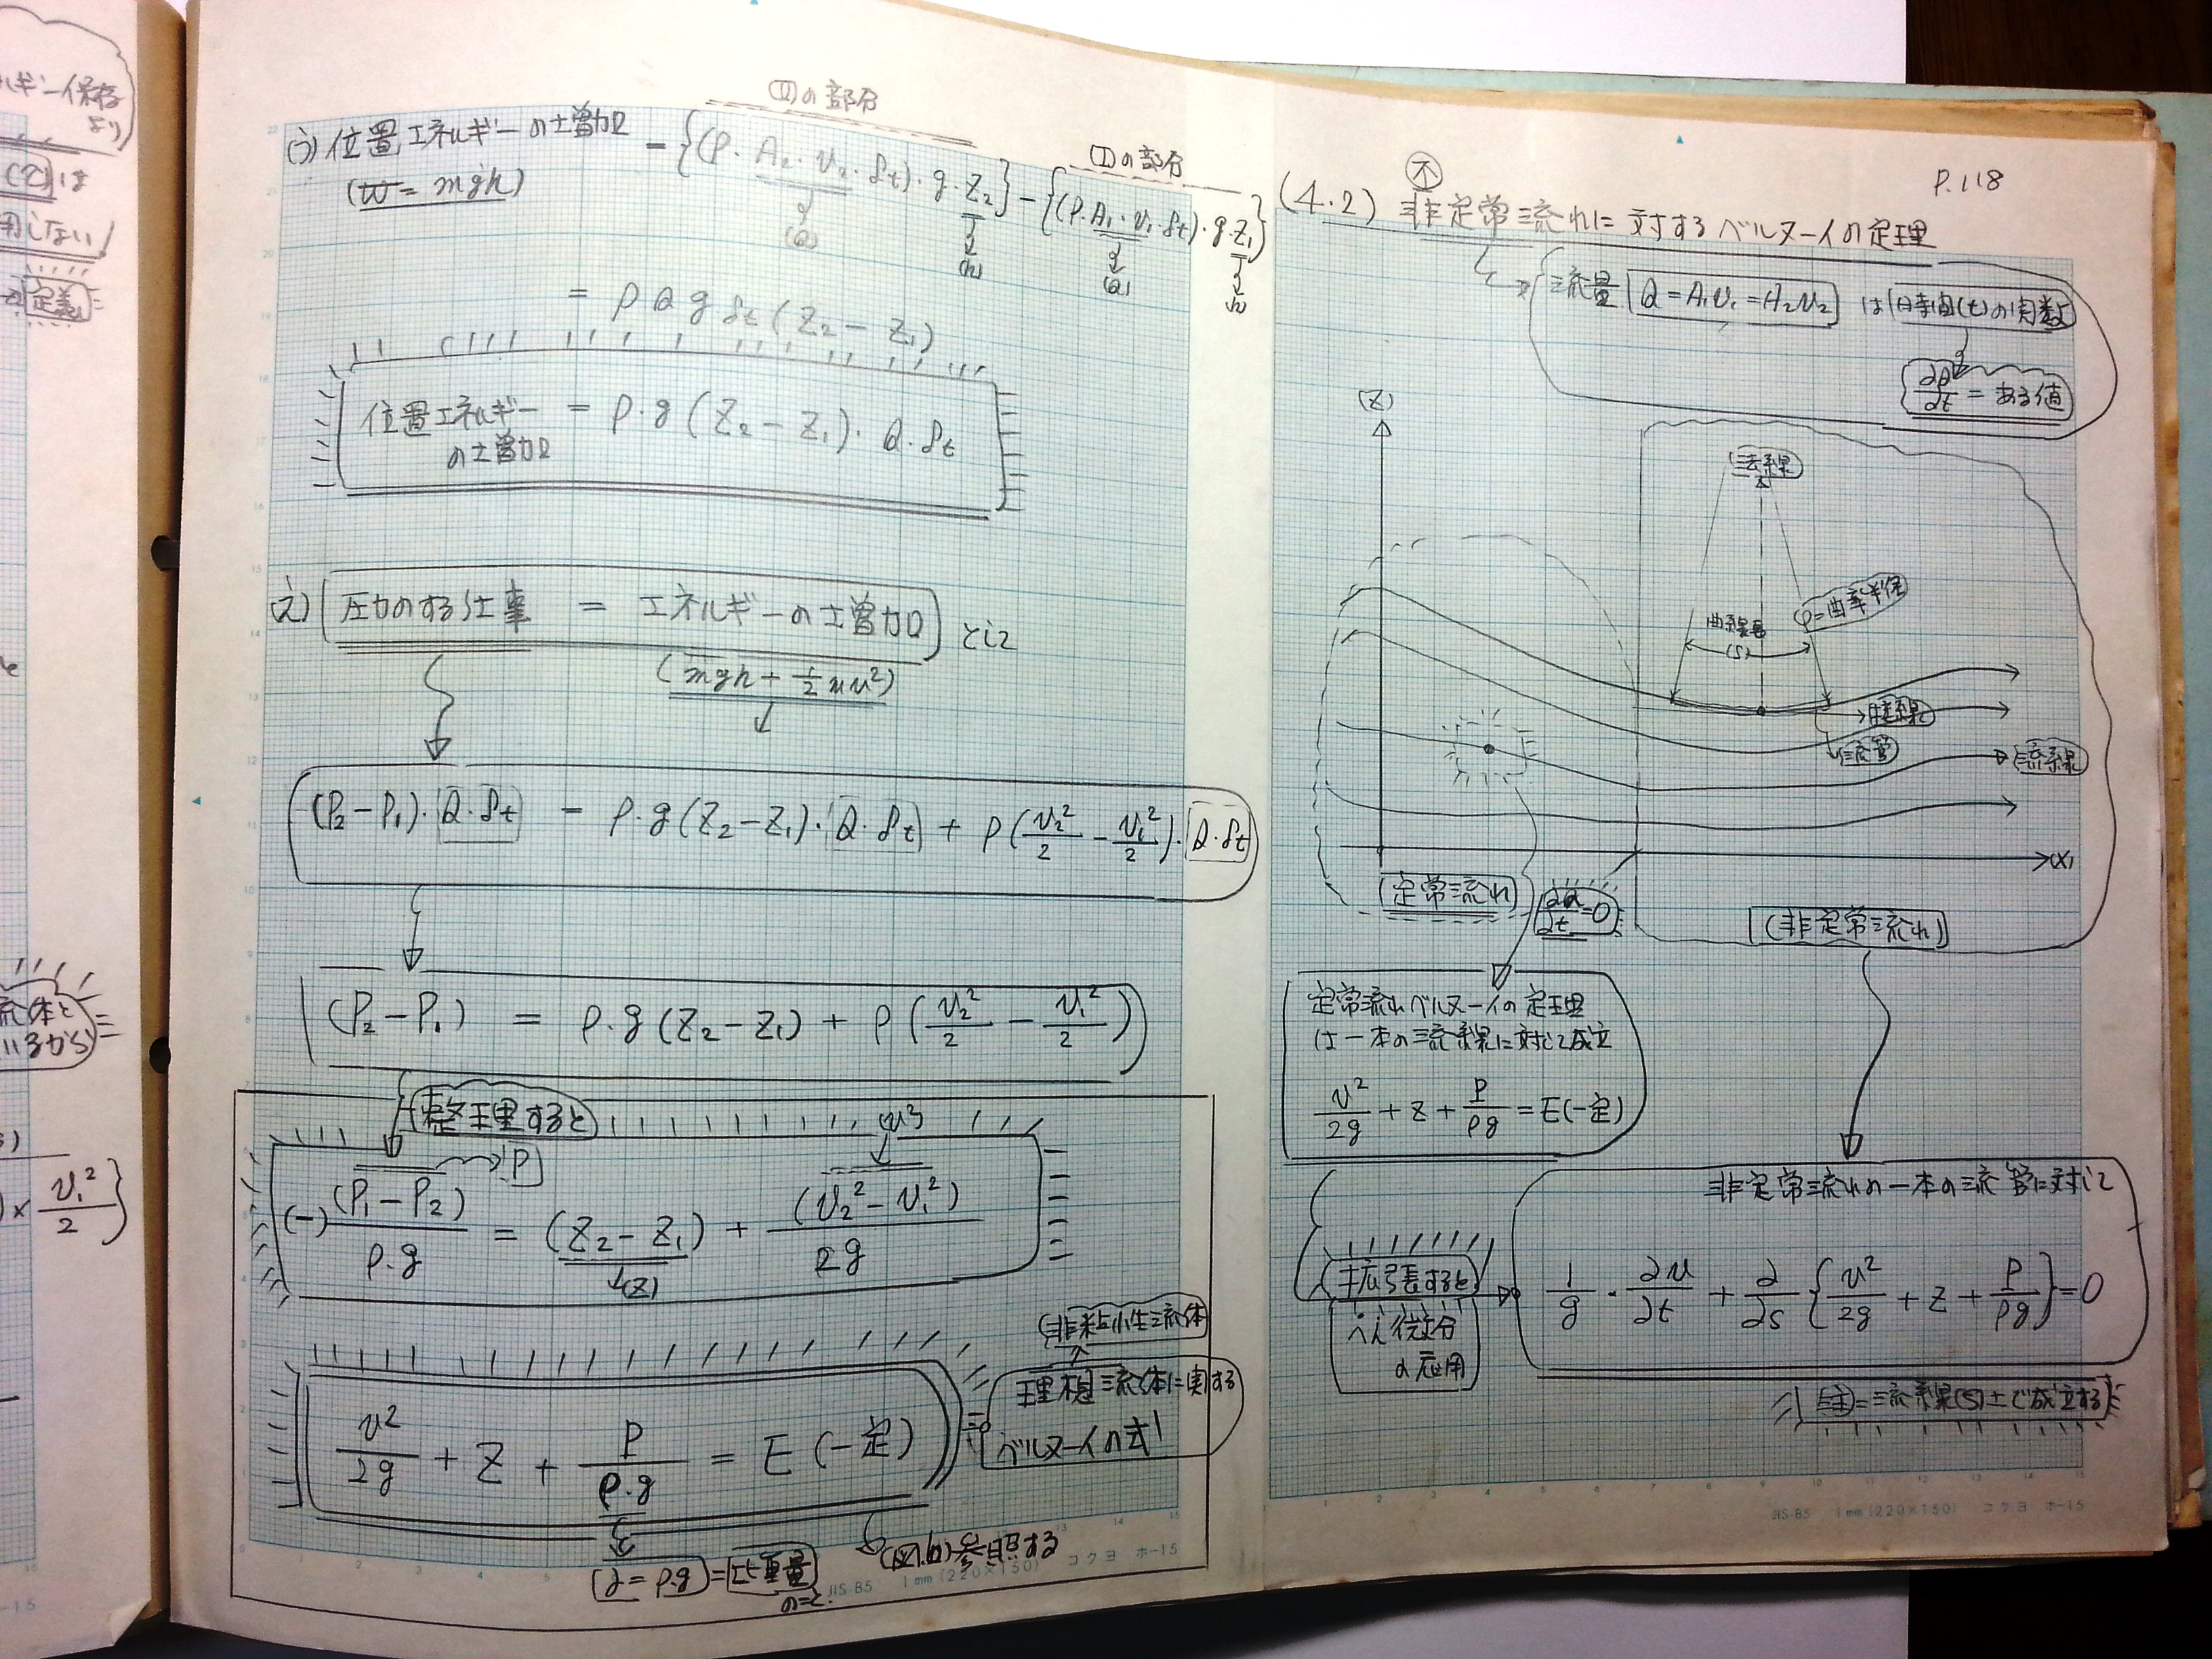 ギー保存
より
は
用しない!
定義
流体と
いるから
× v₁²/2 }
(Ⅱ)の部分
う) 位置エネルギーの増加 = {(ρ・A₂・v₂・δt)・g・Z₂} - {(ρ・A₁・v₁・δt)・g・Z₁}
(Ⅰ)の部分
(W = mgh)
(Q) (h) (Q) (h)
= ρQgδt(Z₂ - Z₁)
位置エネルギーの増加 = ρ・g(Z₂ - Z₁)・Q・δt
え) 圧力のする仕事 = エネルギーの増加 として
(mgh + 1/2 mv²)
(P₂-P₁)・Q・δt = ρ・g(Z₂-Z₁)・Q・δt + ρ(v₂²/2 - v₁²/2)・Q・δt
(P₂-P₁) = ρ・g(Z₂-Z₁) + ρ(v₂²/2 - v₁²/2)
整理すると
P
(-) (P₁-P₂)/ρ・g = (Z₂-Z₁) + (v₂²-v₁²)/2g
(Z)
(非粘性流体)
v²/2g + Z + P/ρ・g = E (一定)
理想流体に関する
ベルヌーイの式!
(γ = ρ・g) = 比重量
のこと.
参照する
JIS-B5 1mm(220×150) コクヨ ホ-15
P.118
不
(4.2) 非定常流れに対するベルヌーイの定理
流量 Q = A₁v₁ = A₂v₂ は 時間(t)の関数
∂Q/∂t = ある値
(Z)
法線
曲線長
(S)
ρ=曲率半径
接線
流管
流線
(X)
(定常流れ)
∂Q/∂t = 0
(非定常流れ)
定常流れベルヌーイの定理
は一本の流線に対して成立
v²/2g + Z + P/ρg = E(一定)
非定常流れの一本の流管に対して
拡張すると
へん微分
の応用
1/g ・ ∂v/∂t + ∂/∂s {v²/2g + Z + P/ρg} = 0
注=流線(S)上で成立する
JIS-B5 1mm(220×150) コクヨ ホ-15